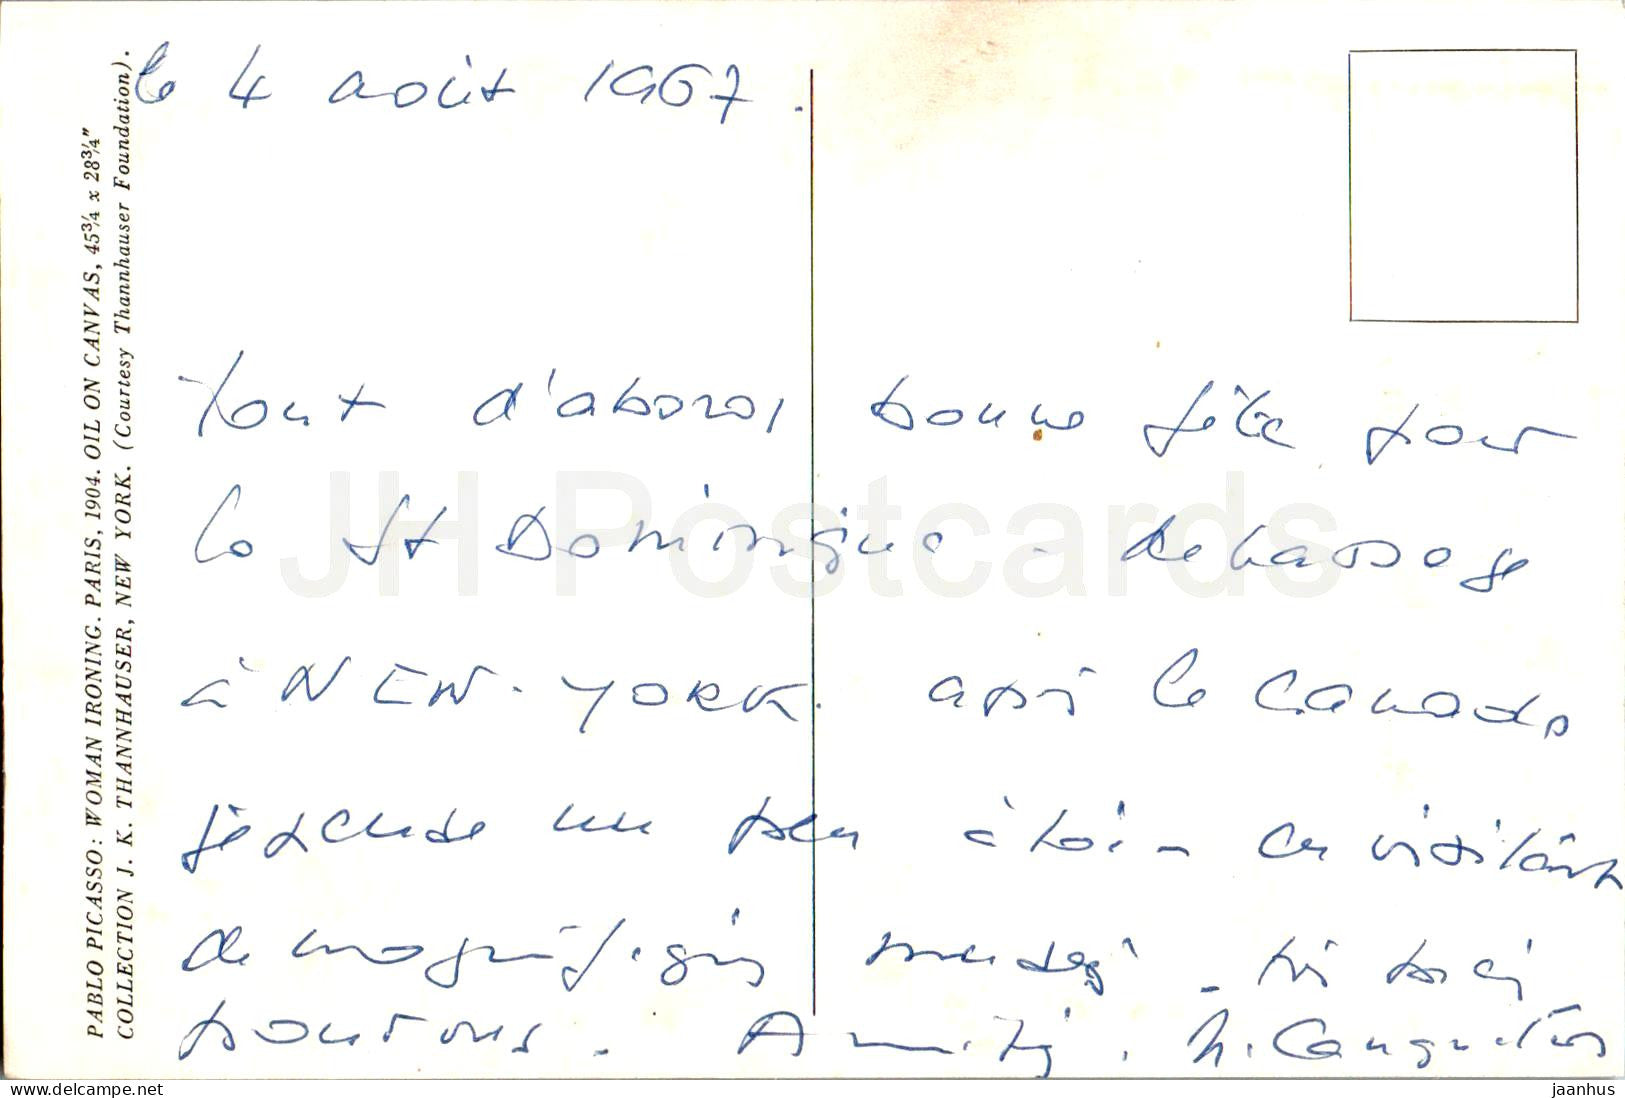 PABLO PICASSO: WOMAN IRONING. PARIS, 1904. OIL ON CANVAS, 45¾ x 28¾"
COLLECTION J. K. THANNHAUSER, NEW YORK. (Courtesy Thannhauser Foundation).
le 4 août 1967.
Tout d'abord bonne fête pour
la St Dominique - de passage
à NEW-YORK. après le Canada
je pense un peu à toi - en visitant
de magnifiques musées -
pour vous. Amitiés.
JH Postcards
delcampe.net
jaanhus